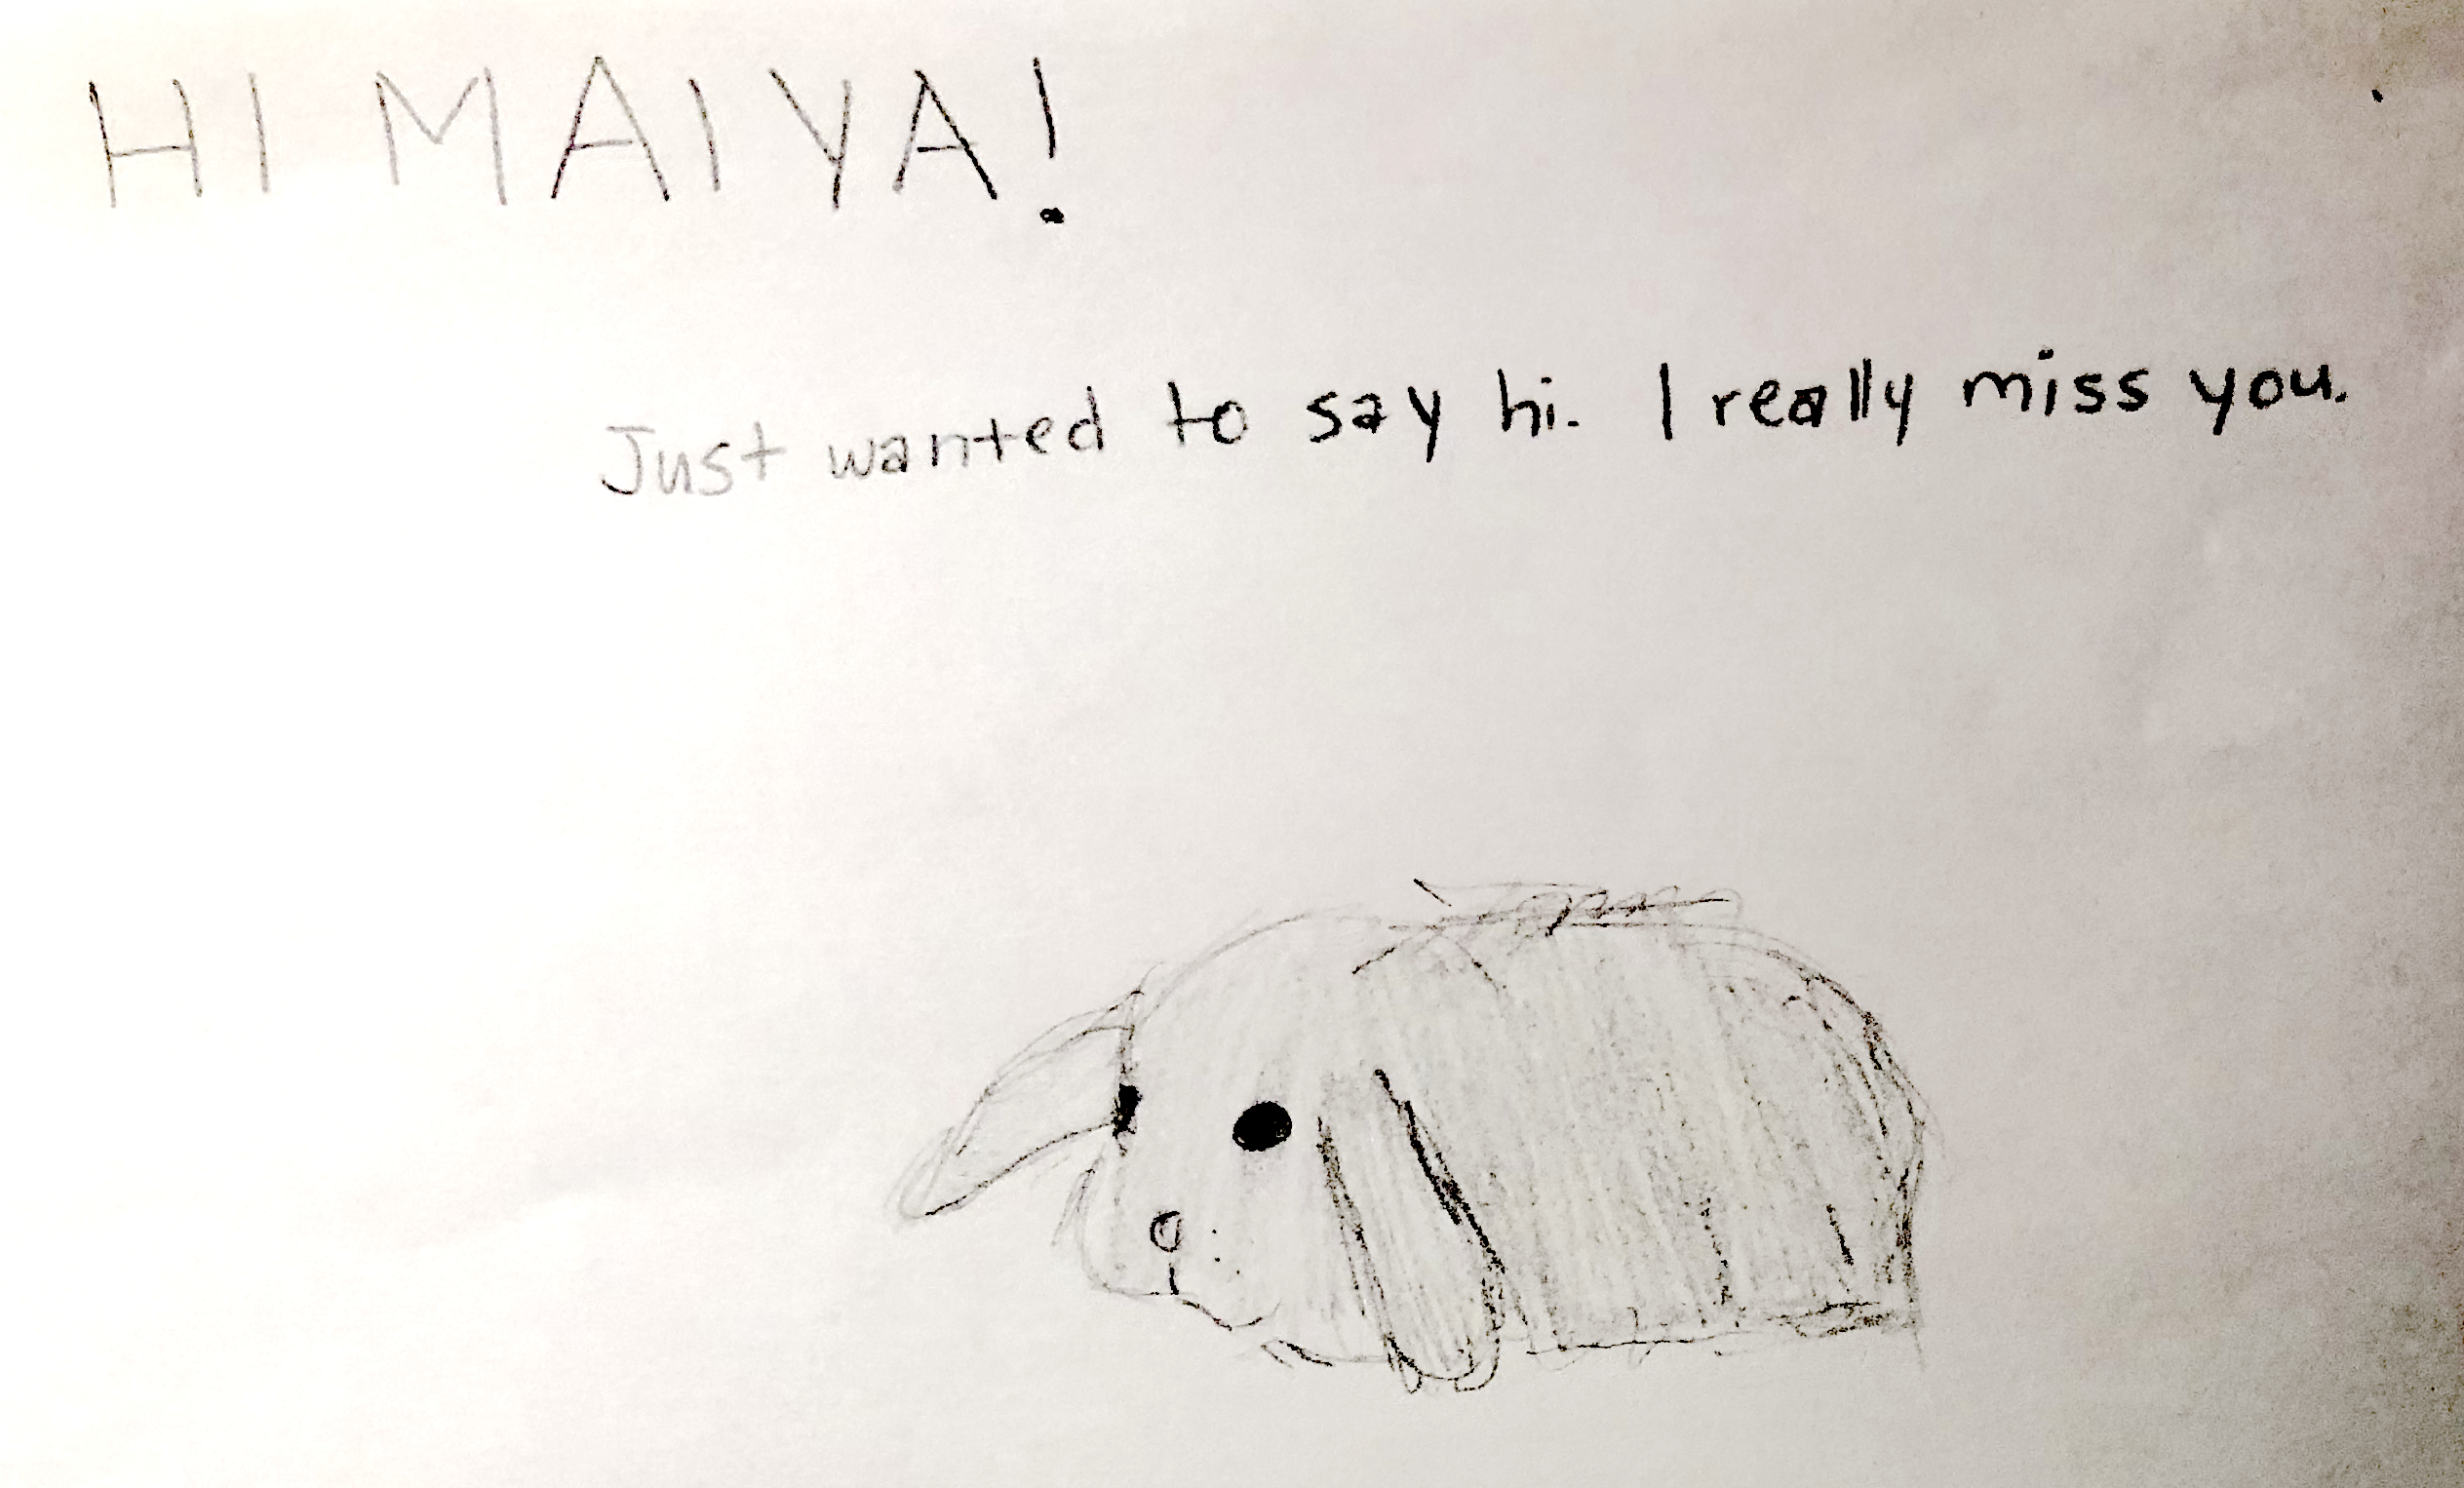 HI MAIYA!
Just wanted to say hi. I really miss you.